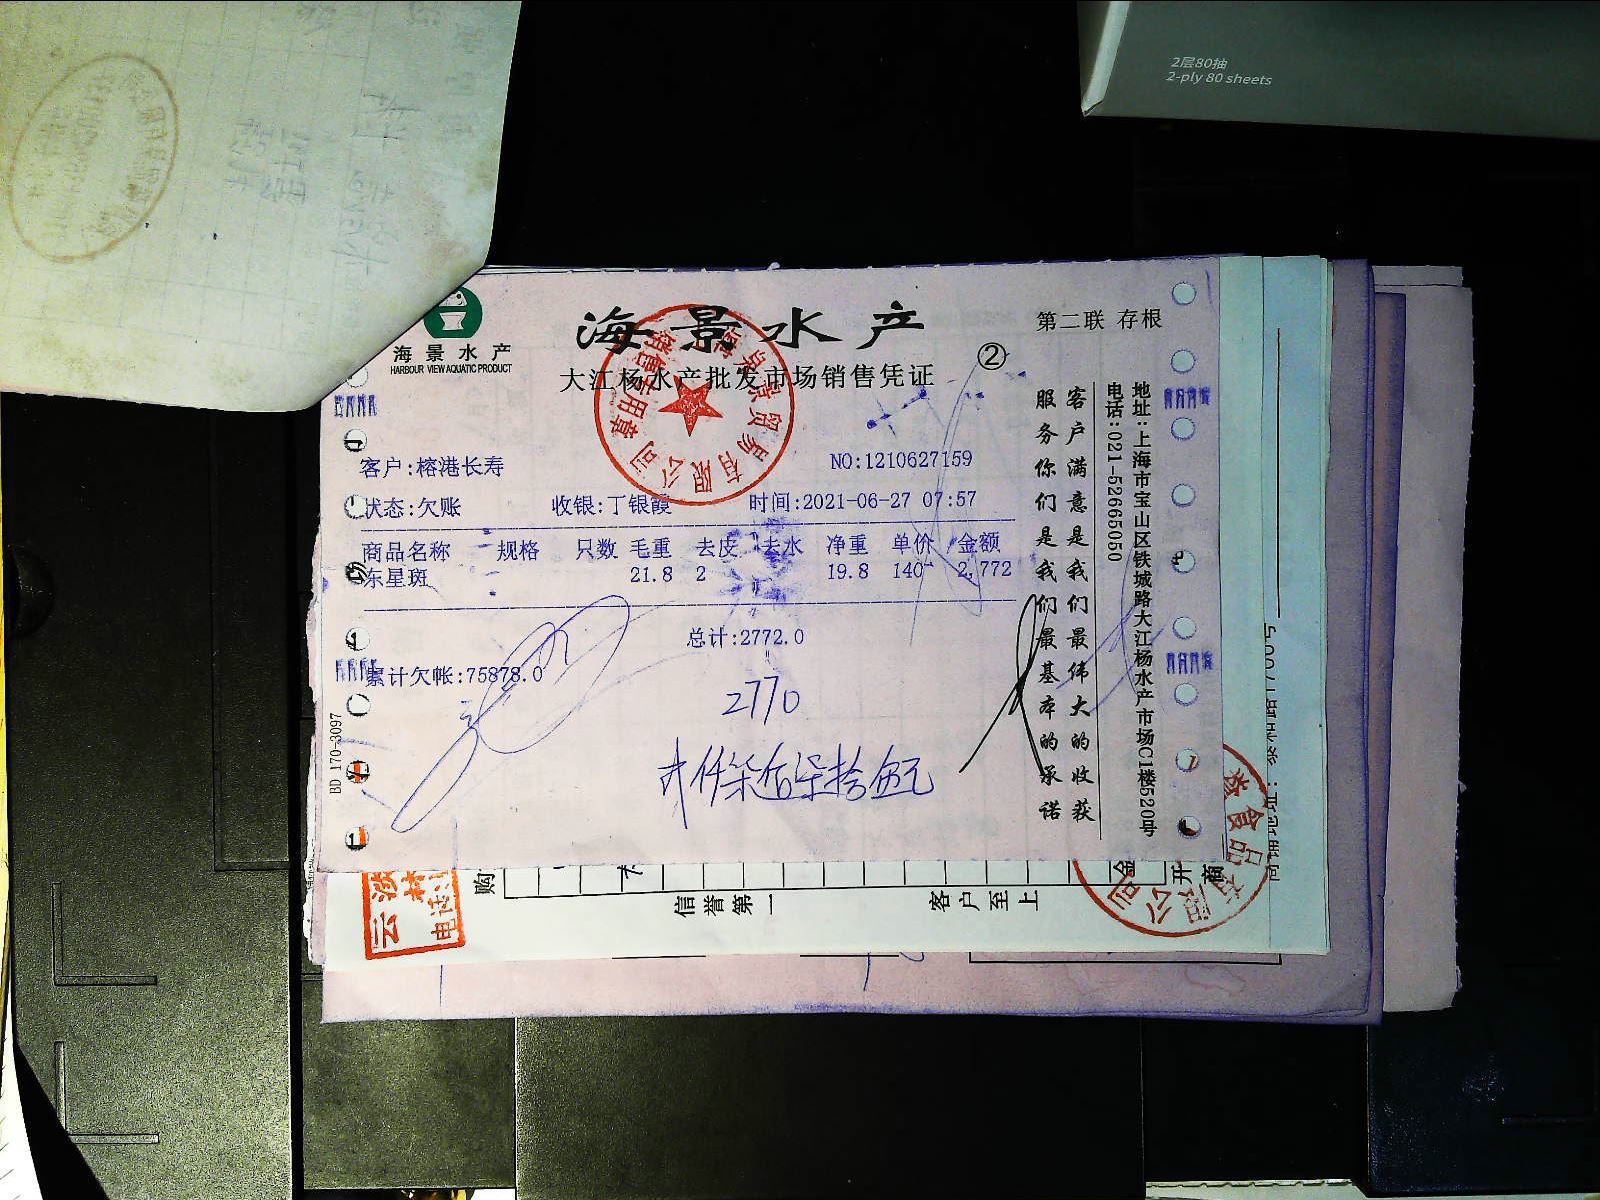 2层80抽
2-ply 80 sheets
海景水产
HARBOUR VIEW AQUATIC PRODUCT
海景水产
第二联 存根
②
大江杨水产批发市场销售凭证
客户:榕港长寿
NO:1210627159
状态:欠账 收银:丁银霞 时间:2021-06-27 07:57
商品名称 规格 只数 毛重 去皮 去水 净重 单价 金额
东星斑 21.8 2 19.8 140 2,772
总计:2772.0
累计欠帐:75878.0
2770
BD 170-3097
客户满意是我们最伟大的收获
服务你们是我们最基本的承诺
地址:上海市宝山区铁城路大江杨水产市场C1楼520号
电话:021-52665050
销售专用章
景贸易有限公司
购
信誉第一
客户至上
金
开
商
益食品有限公司
云
电话